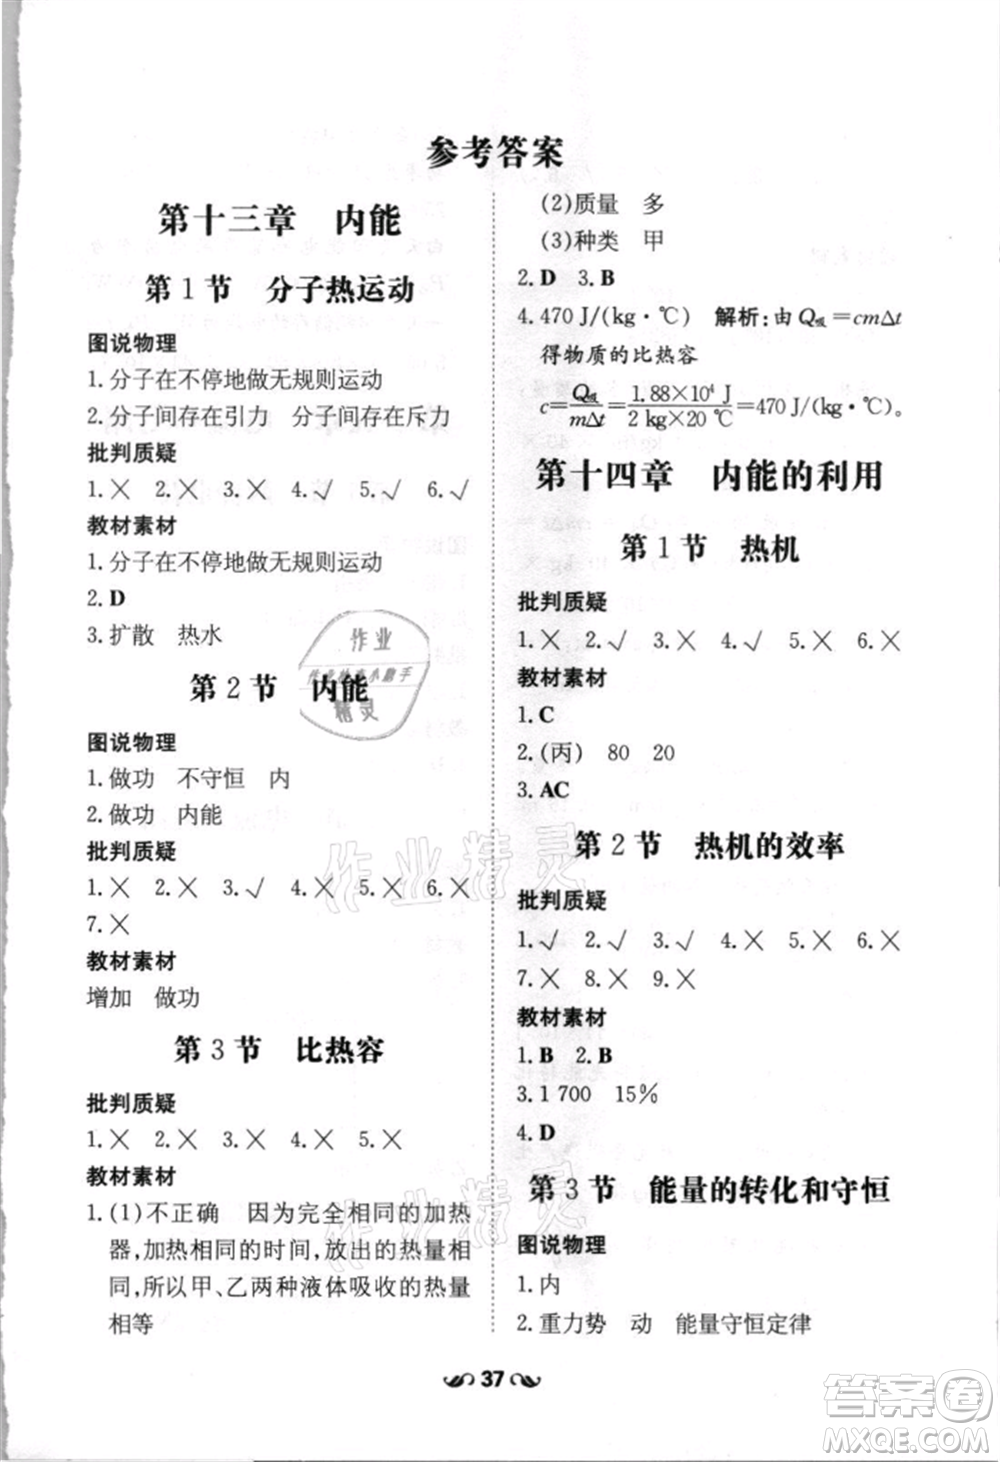 参考答案
第十三章 内能
第1节 分子热运动
图说物理
1.分子在不停地做无规则运动
2.分子间存在引力 分子间存在斥力
批判质疑
1.× 2.× 3.× 4.√ 5.× 6.√
教材素材
1.分子在不停地做无规则运动
2.D
3.扩散 热水
第2节 内能
图说物理
1.做功 不守恒 内
2.做功 内能
批判质疑
1.× 2.× 3.√ 4.× 5.× 6.×
7.×
教材素材
增加 做功
第3节 比热容
批判质疑
1.× 2.× 3.× 4.× 5.×
教材素材
1.(1)不正确 因为完全相同的加热
器,加热相同的时间,放出的热量相
同,所以甲、乙两种液体吸收的热量
相等
(2)质量 多
(3)种类 甲
2.D 3.B
4.470 J/(kg·℃) 解析:由Q吸=cmΔt
得物质的比热容
c=Q吸/mΔt=1.88×10⁴ J/2 kg×20 ℃=470 J/(kg·℃)。
第十四章 内能的利用
第1节 热机
批判质疑
1.× 2.√ 3.× 4.√ 5.× 6.×
教材素材
1.C
2.(丙) 80 20
3.AC
第2节 热机的效率
批判质疑
1.√ 2.√ 3.√ 4.× 5.× 6.×
7.× 8.× 9.×
教材素材
1.B 2.B
3.1 700 15%
4.D
第3节 能量的转化和守恒
图说物理
1.内
2.重力势 动 能量守恒定律
37
作业
作业检查小助手
精灵
作业精灵
作业精灵
答案圈
MXQE.COM